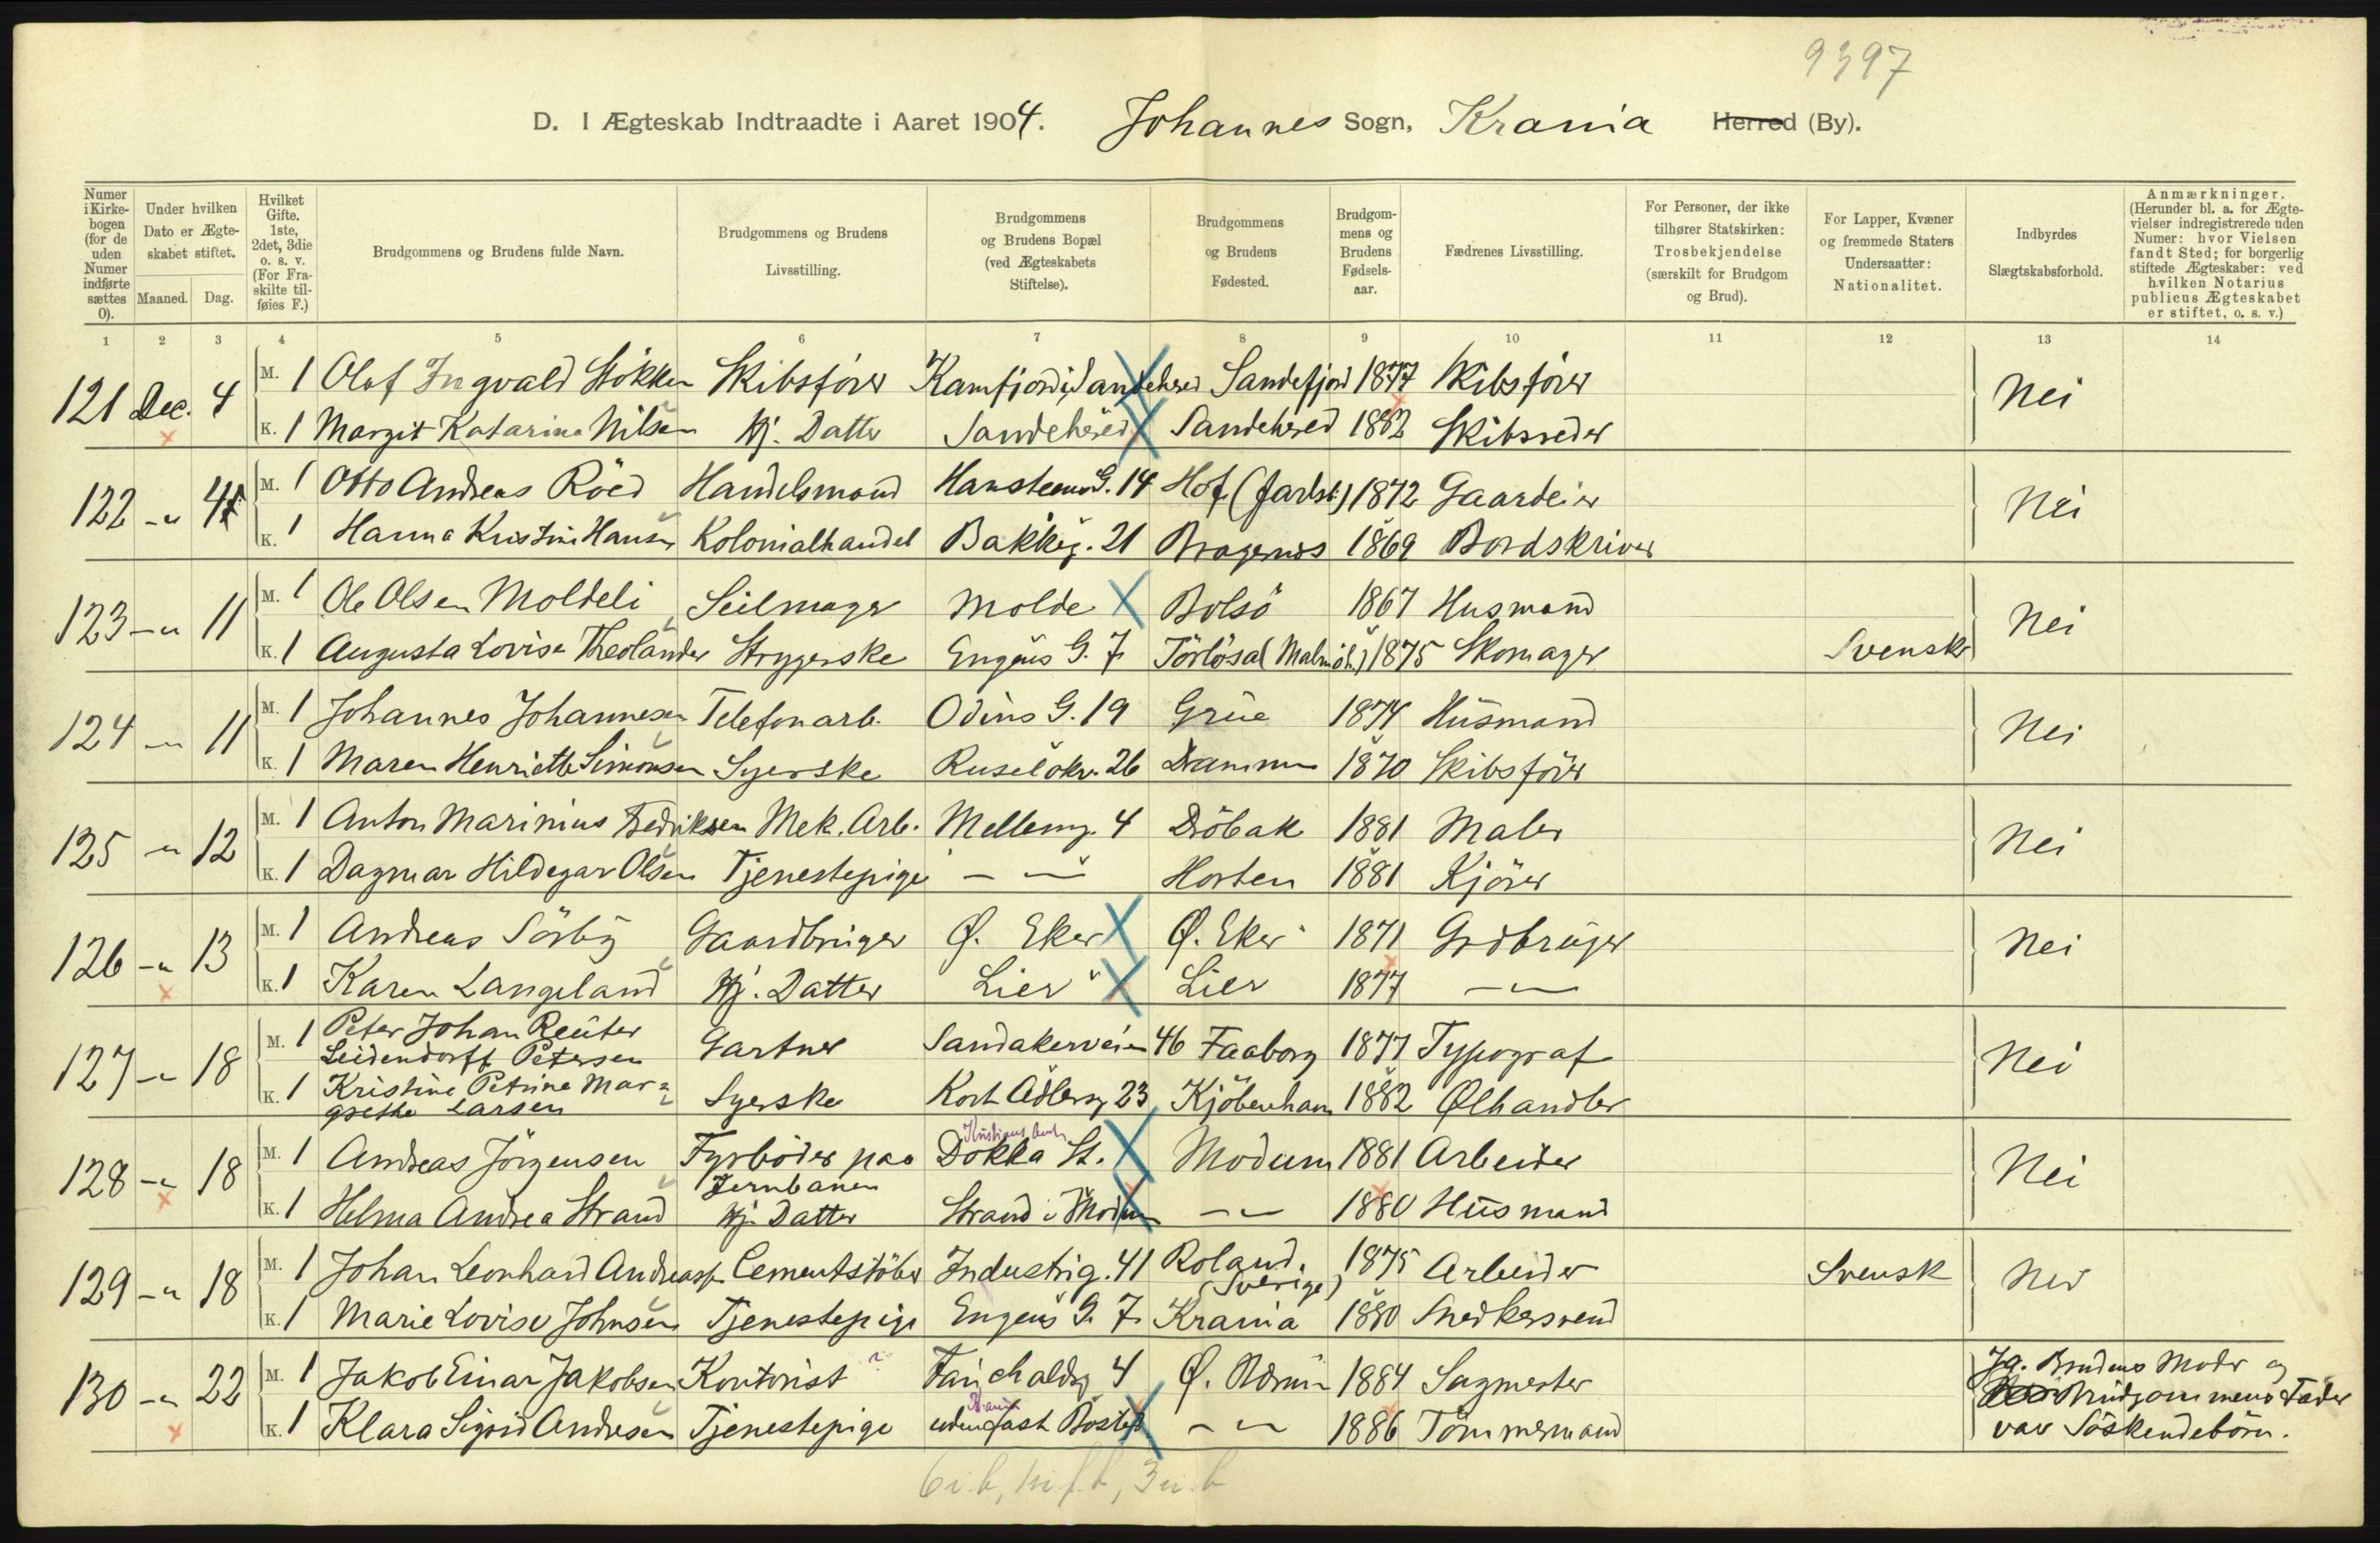 9397
D. I Ægteskab Indtraadte i Aaret 1904. Johannes Sogn, Krania Herred (By).
Numer i Kirkebogen (for de uden Numer indførte sættes 0).
Under hvilken Dato er Ægteskabet stiftet.
Maaned. Dag.
Hvilket Gifte. 1ste, 2det, 3die o. s. v. (For Fraskilte tilføies F.)
Brudgommens og Brudens fulde Navn.
Brudgommens og Brudens Livsstilling.
Brudgommens og Brudens Bopæl (ved Ægteskabets Stiftelse).
Brudgommens og Brudens Fødested.
Brudgommens og Brudens Fødselsaar.
Fædrenes Livsstilling.
For Personer, der ikke tilhører Statskirken: Trosbekjendelse (særskilt for Brudgom og Brud).
For Lapper, Kvæner og fremmede Staters Undersaatter: Nationalitet.
Indbyrdes Slægtskabsforhold.
Anmærkninger. (Herunder bl. a. for Ægtevielser indregistrerede uden Numer: hvor Vielsen fandt Sted; for borgerlig stiftede Ægteskaber: ved hvilken Notarius publicus Ægteskabet er stiftet, o. s. v.)
1 2 3 4 5 6 7 8 9 10 11 12 13 14
121 Dec. 4 M. 1 Olaf Ingvald Stökken Skibsförer Kamfjord i Sandehered Sandefjord 1877 Skibsförer Nei
K. 1 Margit Katarina Nilsen Hj. Datter Sandehered Sandehered 1882 Skibsreder
122 -"- 4 M. 1 Otto Andreas Röed Handelsmand Hansteens G. 14 Hof (Jarlsb.) 1872 Gaardeier Nei
K. 1 Hanna Kristine Hansen Kolonialhandel Bakkeg. 21 Bragernes 1869 Bordskriver
123 -"- 11 M. 1 Ole Olsen Moldeli Seilmager Molde Bolsö 1867 Husmand Nei
K. 1 Augusta Lovise Theolander Strygerske Engens G. 7 Törlösa (Malmöh.) 1875 Skomager Svensk
124 -"- 11 M. 1 Johannes Johannesen Telefonarb. Odins G. 19 Grue 1874 Husmand Nei
K. 1 Maren Henriette Simonsen Syerske Ruselökv. 26 Drammen 1870 Skibsförer
125 -"- 12 M. 1 Anton Marinius Fredriksen Mek. Arb. Mellemg. 4 Dröbak 1881 Maler Nei
K. 1 Dagmar Hildegar Olsen Tjenestepige -"- Horten 1881 Kjörer
126 -"- 13 M. 1 Andreas Sörby Gaardbruger Ø. Eker Ø. Eker 1871 Grdbruger Nei
K. 1 Karen Langeland Hj. Datter Lier Lier 1877 -"-
127 -"- 18 M. 1 Peter Johan Reuter
Leidendorff Petersen Gartner Sandakerveien 46 Faaborg 1877 Typograf Nei
K. 1 Kristine Petrine Mar=
grethe Larsen Syerske Kort Adlersg 23 Kjöbenhavn 1882 Ølhandler
128 -"- 18 M. 1 Andreas Jörgensen Fyrböder paa
Jernbanen Kristians Amt Dokka St. Modum 1881 Arbeider Nei
K. 1 Helma Andrea Strand Hj. Datter Strand i Modum -"- 1880 Husmand
129 -"- 18 M. 1 Johan Leonhard Andreass. Cementstöber Industrig. 41 Roland.
(Sverige) 1875 Arbeider Svensk Nei
K. 1 Marie Lovise Johnsen Tjenestepige Engens G. 7 Krania 1880 Snedkersvend
130 -"- 22 M. 1 Jakob Einar Jakobsen Kontorist ? 4 1884 Sagmester
K. 1 Klara Sigrid Andresen Tjenestepige uden fast Bosted -"- 1886 Tömmermand
Ja. Brudens Moder og
Brudgommens Fader
var Söskendebörn.